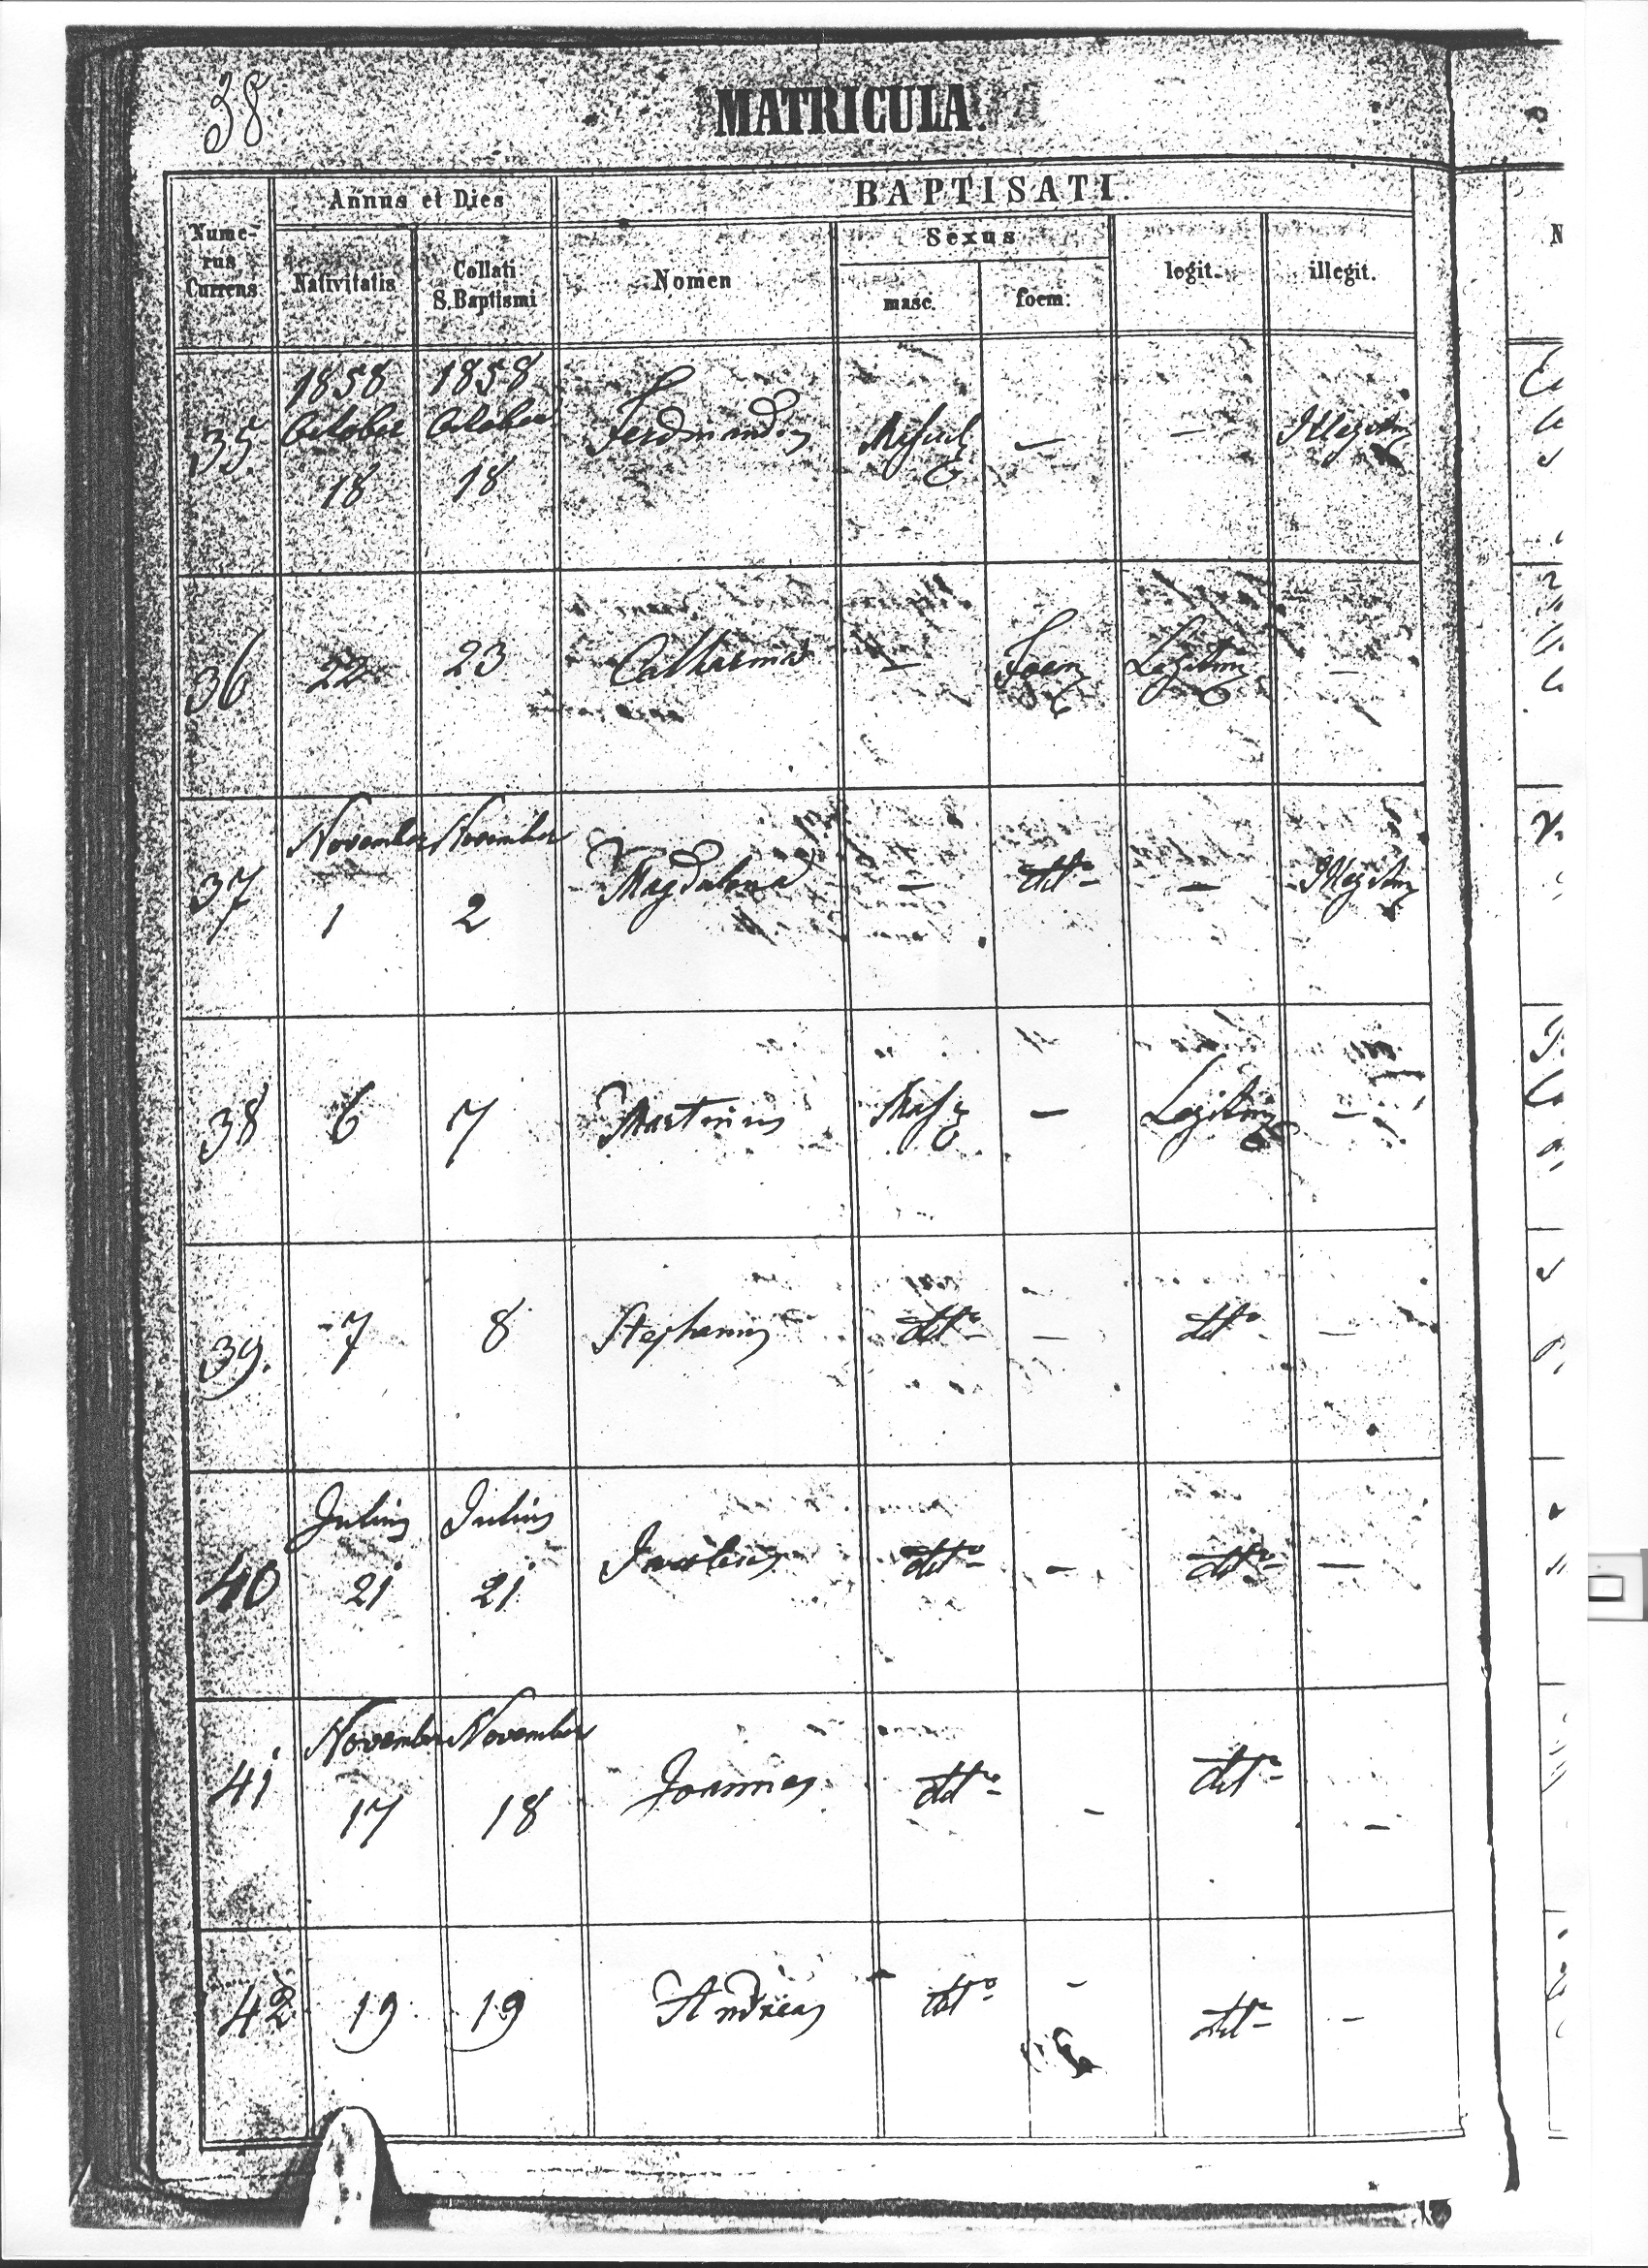 38
MATRICULA
Annus et Dies
BAPTISATI.
Nume-
rus
Currens
Nativitatis
Collati
S. Baptismi
Nomen
Sexus
masc.
foem.
legit.
illegit.
1858 1858
October October
35. 18 18 Ferdinandus — —
36 22 23 Catharina — Foem Legitim —
November November
37 1 2 Magdalena — dtto — Illegitim
38 6 7 Martinus Masc — Legitim —
39. 7 8 Stephanus dtto — dtto —
Julius Julius
40 21 21 dtto — dtto —
November November
41 17 18 Joannes dtto — dtto —
42 19 19 Andreas dtto — dtto —